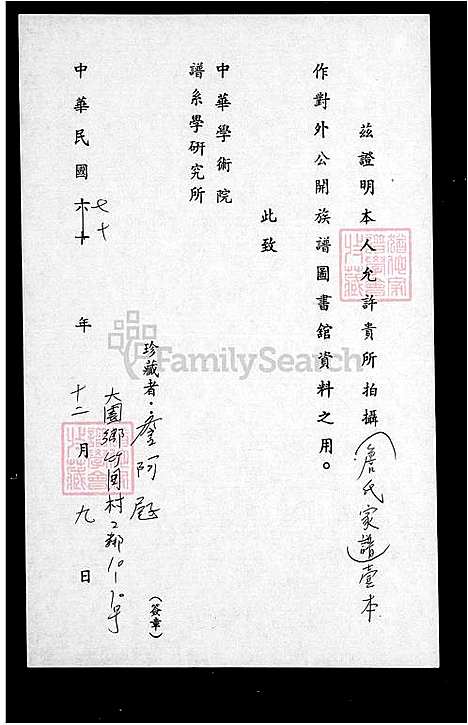 茲證明本人允許貴所拍攝(詹氏家譜)壹本
作對外公開族譜圖書館資料之用。
此致
中華學術院
譜系學研究所
珍藏者:詹阿 (簽章)
大園鄉竹圍村2鄰10-10号
中華民國七十年十二月九日
FamilySearch